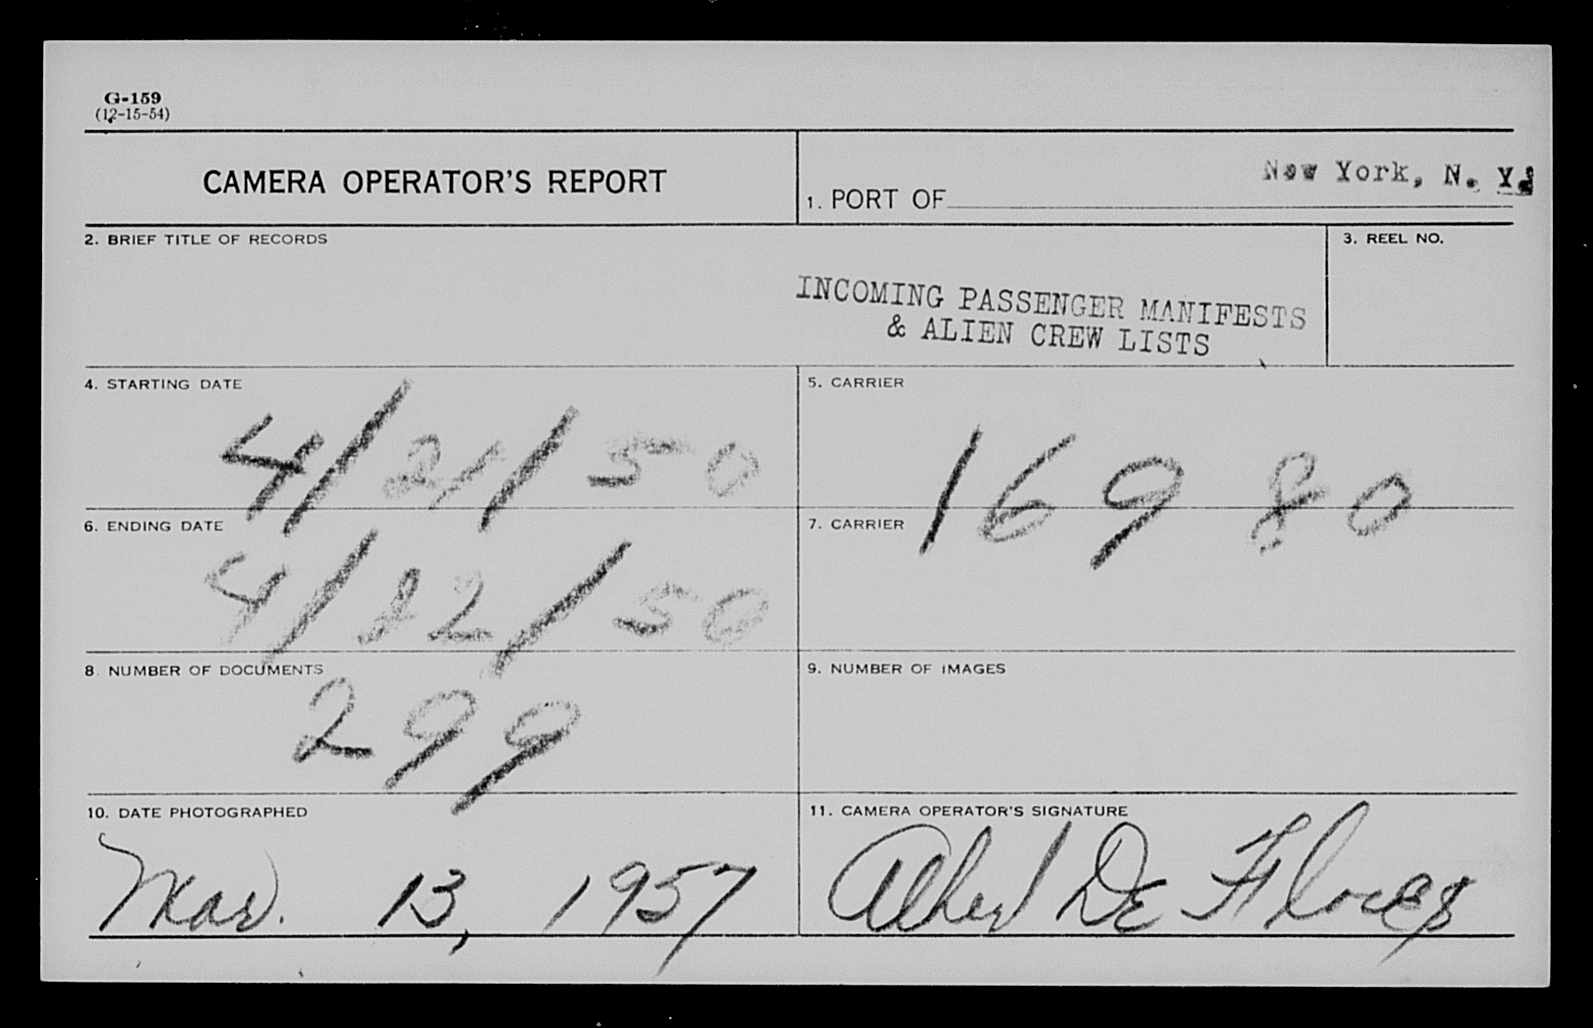 G-159
(12-15-54)
CAMERA OPERATOR'S REPORT
1. PORT OF New York, N. Y.
2. BRIEF TITLE OF RECORDS
INCOMING PASSENGER MANIFESTS
& ALIEN CREW LISTS
3. REEL NO.
4. STARTING DATE
4/21/50
5. CARRIER
16980
6. ENDING DATE
4/22/50
7. CARRIER
8. NUMBER OF DOCUMENTS
299
9. NUMBER OF IMAGES
10. DATE PHOTOGRAPHED
Mar. 13, 1957
11. CAMERA OPERATOR'S SIGNATURE
De Flores